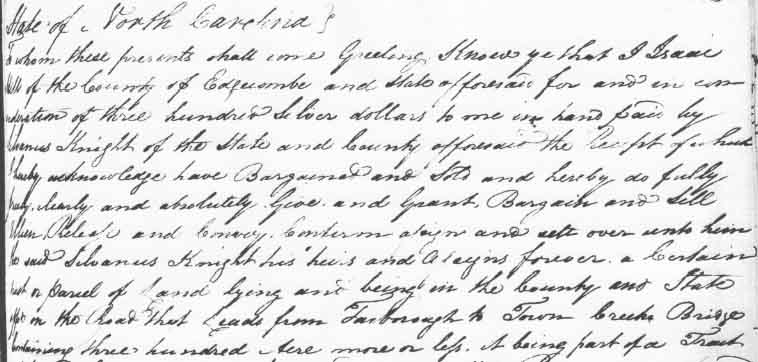 State of North Carolina
To whom these presents shall come Greeling Know ye that I Isaac
of the County of Edgcombe and State afforesaid for and in con
sideration of three hundred Silver dollars to me in hand paid by
Silvanus Knight of the State and County afforesaid the Receipt of which
I hereby acknowledge have Bargained and Sold and hereby do fully
freely clearly and absolutely Give and Grant Bargain and Sell
Alien Release and Convey Conferm asign and sett over unto him
the said Silvanus Knight his heirs and Asigns forever a Certain
tract or parcel of Land lying and being in the County and State
on the Road that Leads from Tarborough to Town Creeks Bridge
Containing three hundred Acre more or less it being part of a Tract